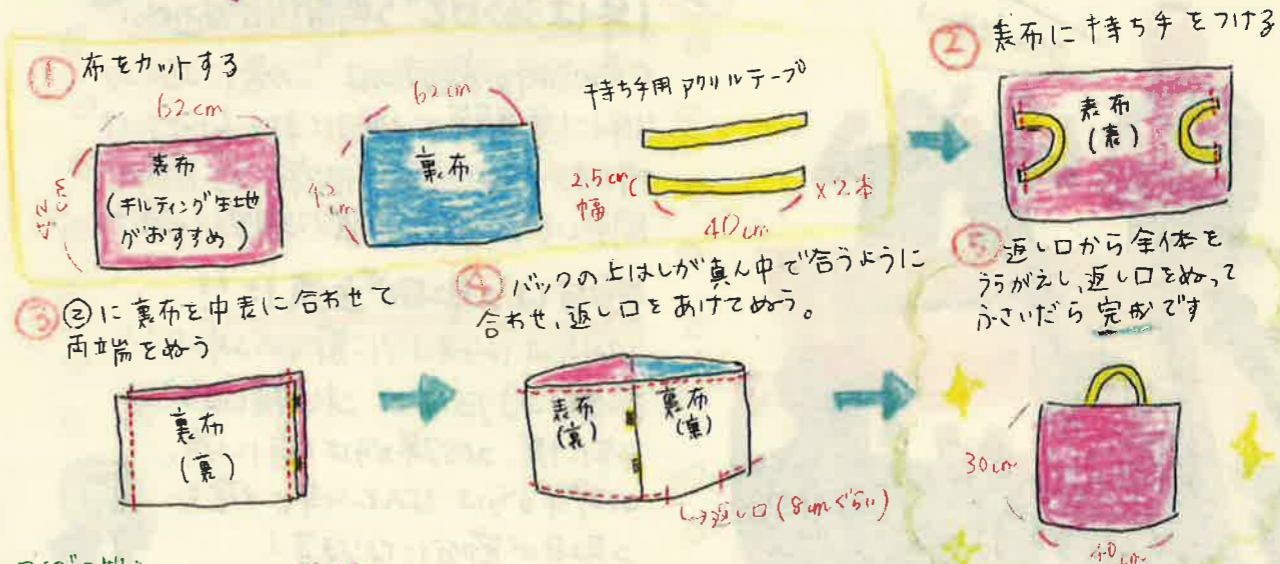 ① 布をカットする
62cm
42cm
表布
(キルティング生地
がおすすめ)
62cm
42cm
裏布
持ち手用アクリルテープ
2.5cm
幅
×2本
40cm
② 表布に持ち手をつける
表布
(表)
③ ②に裏布を中表に合わせて
両端をぬう
裏布
(裏)
④ バックの上はしが真ん中で合うように
合わせ、返し口をあけてぬう。
表布
(裏)
裏布
(裏)
↳返し口(8cmぐらい)
⑤ 返し口から全体を
うらがえし、返し口をぬって
ふさいだら完成です
30cm
40cm